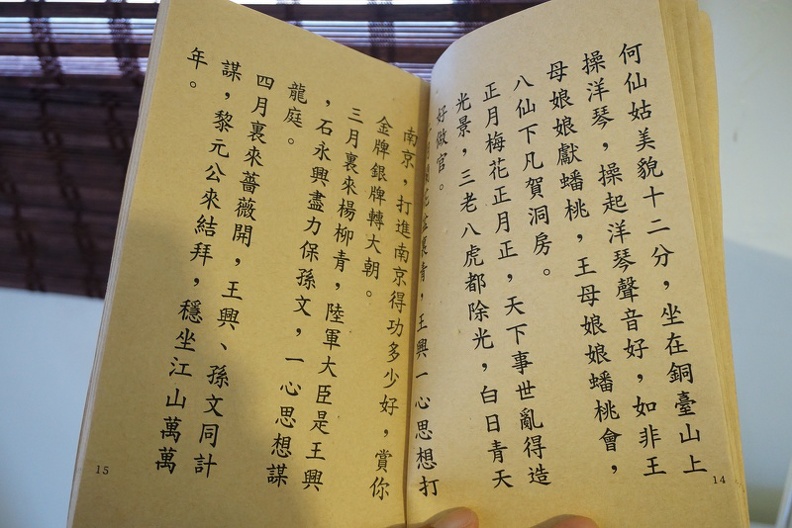 何仙姑美貌十二分，坐在銅臺山上
操洋琴，操起洋琴聲音好，如非王
母娘娘獻蟠桃，王母娘娘蟠桃會，
八仙下凡賀洞房。
正月梅花正月正，天下事世亂得造
光景，三老八虎都除光，白日青天
好做官。
青，王興一心思想打
14
南京，打進南京得功多少好，賞你
金牌銀牌轉大朝。
三月裏來楊柳青，陸軍大臣是王興
，石永興盡力保孫文，一心思想謀
龍庭。
四月裏來薔薇開，王興、孫文同計
謀，黎元公來結拜，穩坐江山萬萬
年。
15